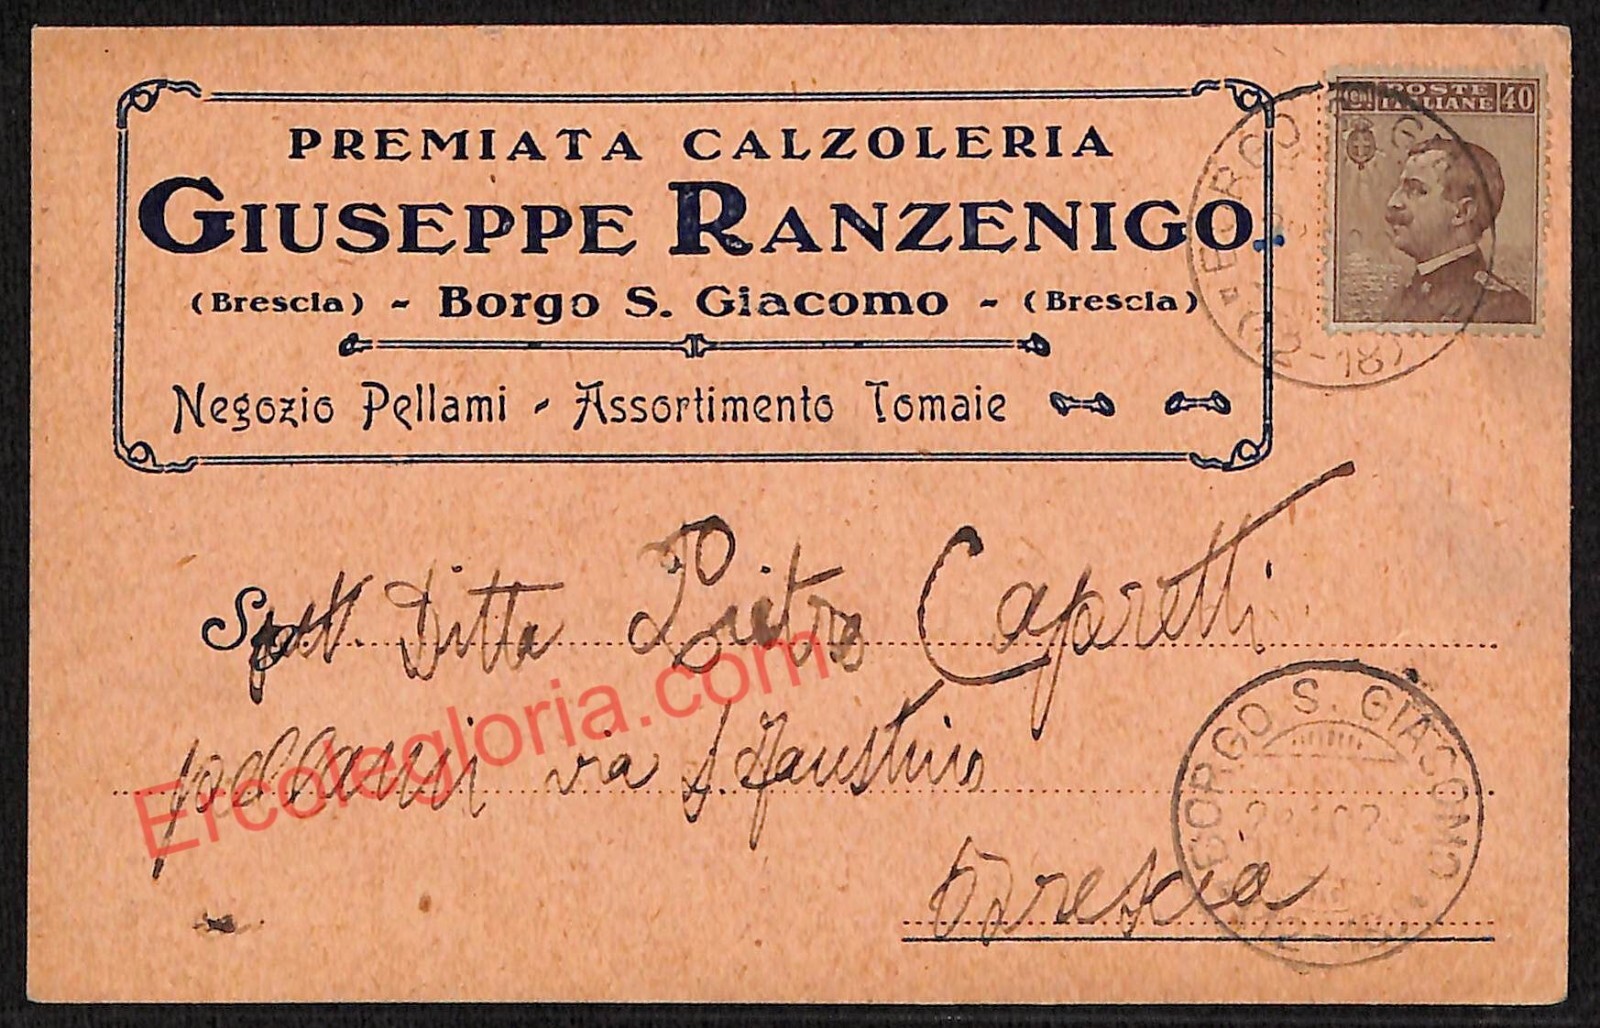 PREMIATA CALZOLERIA
GIUSEPPE RANZENIGO
(Brescia) - Borgo S. Giacomo - (Brescia)
Negozio Pellami - Assortimento Tomaie
POSTE ITALIANE 40
BORGO
(12-187
Spett. Ditta Pietro Capretti
pellami via S. Faustino
Brescia
BORGO S. GIACOMO
Ercolegloria.com